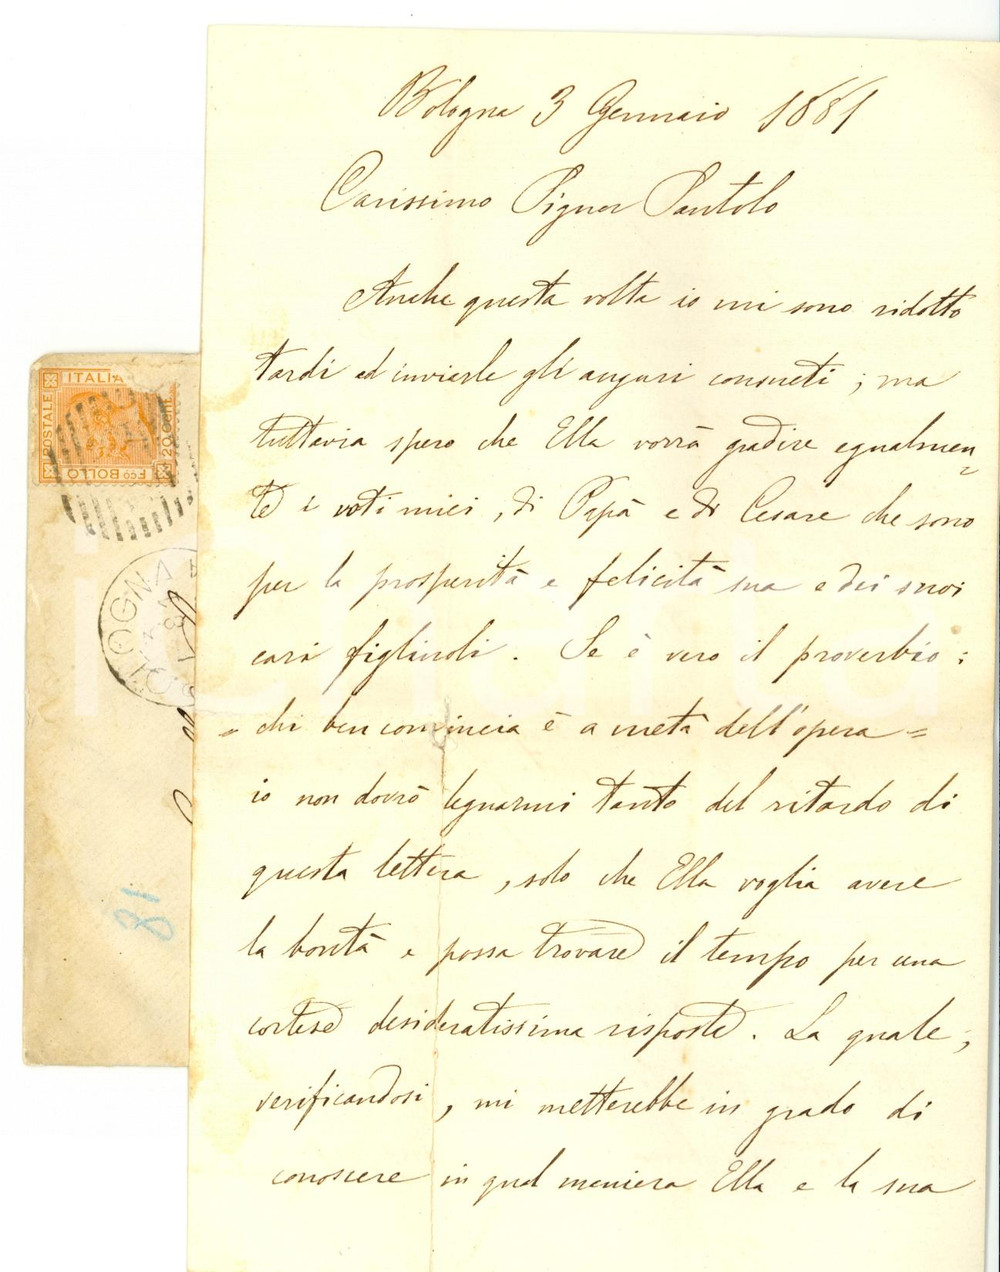 Bologna 3 Gennaio 1881
Carissimo Signor Pantolo
Anche questa volta io mi sono ridotto
tardi ad inviarle gli auguri consueti ; ma
tuttavia spero che Ella vorrà gradire egualmen=
te i voti miei , di Papà e di Cesare che sono
per la prosperità e felicità sua e dei suoi
cari figliuoli . Se è vero il proverbio :
= chi ben comincia è a metà dell'opera =
io non dovrò lagnarmi tanto del ritardo di
questa lettera , solo che Ella voglia avere
la bontà e possa trovare il tempo per una
cortese desideratissima risposta . La quale ,
verificandosi , mi metterebbe in grado di
conoscere in qual maniera Ella e la sua
ITALIA
POSTALE
20 CENT.
FCO BOLLO
BOLOGNA
81